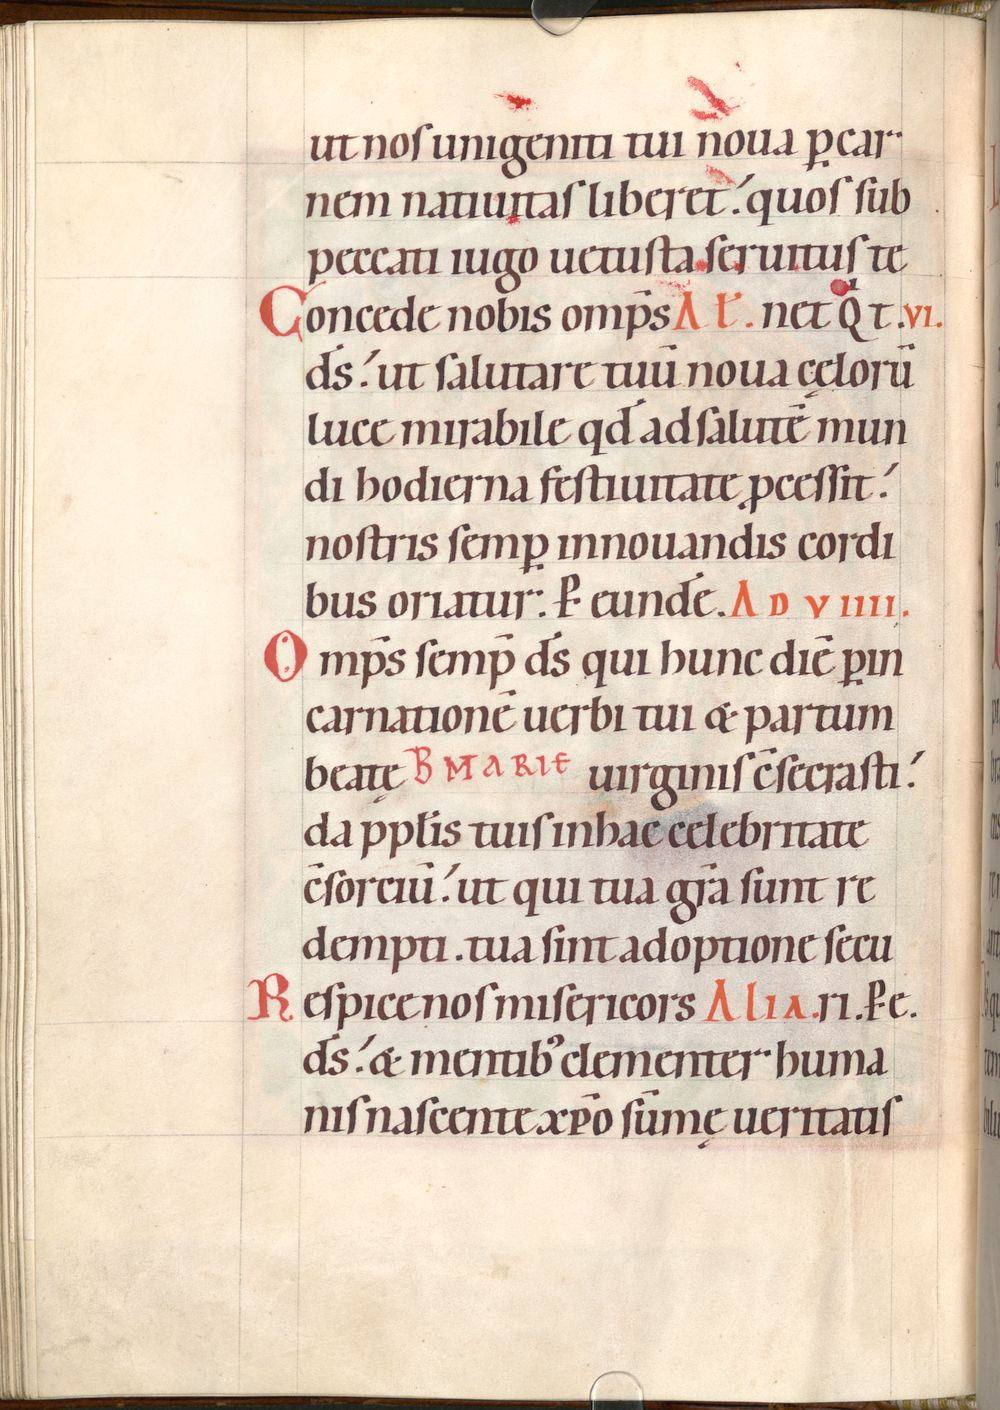 ut nos unigeniti tui noua ꝑ car
nem natiuitas liberet: quos sub
peccati iugo uetusta seruitus te
Concede nobis omp̄s A ł. net Q t. VI.
d̄s: ut salutare tuū noua cęlorū
luce mirabile qd̄ ad salutē mun
di hodierna festiuitate ꝓcessit:
nostris semꝑ innouandis cordi
bus oriatur. P̄ eundē. AD VIIII.
Omp̄s semp̄ d̄s qui hunc diē ꝑ in
carnationē uerbi tui & partum
beatę B MARIE uirginis c̄secrasti:
da ppłis tuis in hac celebritate
c̄sorciū: ut qui tua gr̄a sunt re
dempti. tua sint adoptione secu
Respice nos misericors Alia. ri. P̄ e.
d̄s: & mentibꝰ clementer huma
nis nascente xp̄o sūmę ueritatis